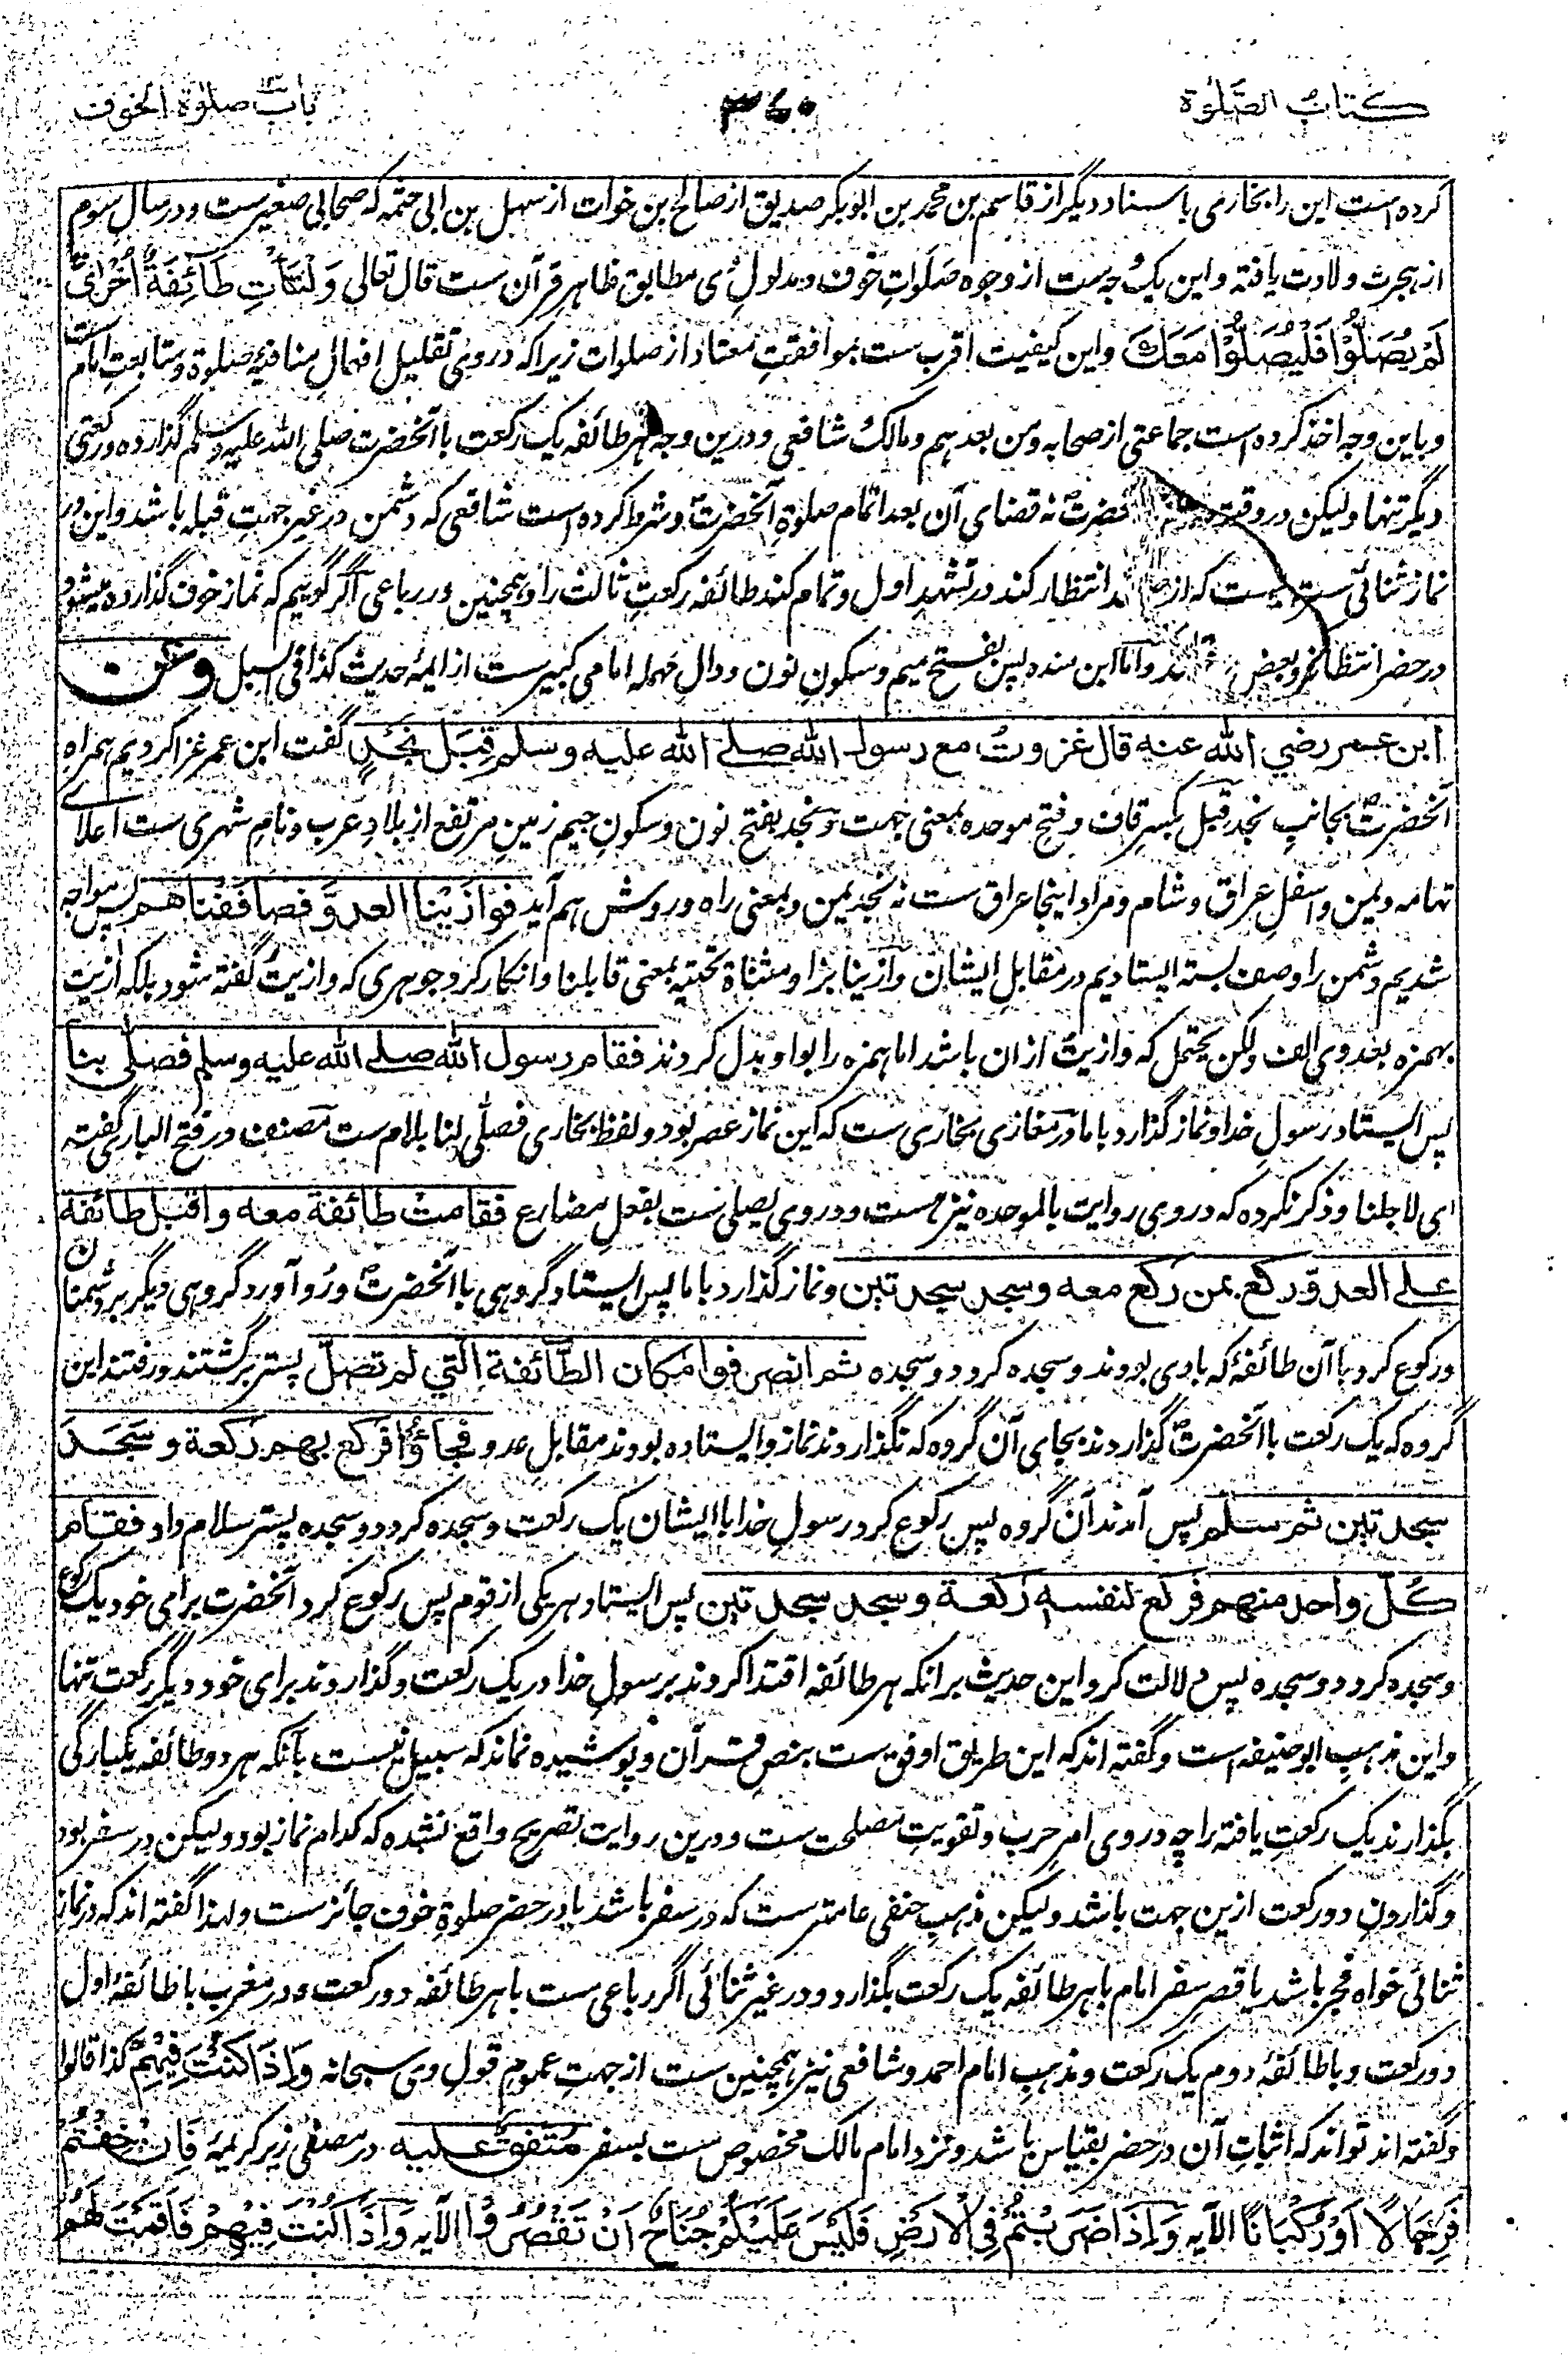 كتاب الصَّلٰوة
۳۶۰
باب صلوٰة الخوف
کرده است این را بخاری باسناد دیگر از قاسم بن محمد بن ابوبکر صدیق از صالح بن خوات از سهل بن ابی حثمه که صحابی صغیر ست و در سال سوم
از هجرت ولادت یافته و این یک وجه ست از وجوه صلوات خوف و مدلول وی مطابق ظاهر قرآن ست قال تعالی وَلْتَأْتِ طَآئِفَةٌ أُخْرٰى
لَمْ يُصَلُّوْا فَلْيُصَلُّوْا مَعَكَ و این کیفیت اقرب ست بموافقت معتاد از صلوات زیرا که در وی تقلیل افعال منافیه صلوة و متابعت امام ست
و باین وجه اخذ کرده است جماعتی از صحابه و من بعدهم و مالک و شافعی و درین وجه هر طائفه یک رکعت با آنحضرت صلی الله علیه وسلم گذارده و رکعتی
دیگر تنها ولیکن در وقت حضرت نه قضای آن بعد اتمام صلوة آنحضرت و شرط کرده است شافعی که دشمن در غیر جهت قبله باشد و این در
نماز ثنائی ست ست که از انتظار کند در تشهد اول و تمام کند طائفه رکعت ثالث را و همچنین در رباعی اگر گوئیم که نماز خوف گذارده میشود
در حضر انتظار و اما ابن منده پس بفتح میم و سکون نون و دال مهمله امامی کبیر ست از ایمهٔ حدیث کذا فی السبل وعن
ابن عمر رضي الله عنه قال غزوتُ مع رسول الله صلے الله عليه وسلم قِبَل نَجْدٍ گفت ابن عمر غزا کردیم همراه
آنحضرت بجانب نجد قبل بکسر قاف و فتح موحده بمعنی جهت و نجد بفتح نون و سکون جیم زمین مرتفع از بلاد عرب و نام شهری ست اعلای
تهامه و یمن و اسفل عراق و شام و مراد اینجا عراق ست نه نجد یمن و بمعنی راه و روشن هم آید فوازَيْنا العدوَّ فصافَفْناهم پس مواجه
شدیم دشمن را و صف بسته ایستادیم در مقابل ایشان وازینا بزا و مثناة تحتیه بمعنی قابلنا و انکار کرد جوهری که وازیت گفته شود بلکه آزیت
بهمزه بعد وی الف ولکن یحتمل که وازیت ازان باشد اما همزه را بواو بدل کردند فقام رسول الله صلے الله عليه وسلم فصلّى بنا
پس ایستاد رسول خدا و نماز گذارد با ما در مغازی بخاری ست که این نماز عصر بود و لفظ بخاری فصلّی لنا بلام ست مصنف در فتح الباری گفته
ای لاجلنا و ذکر نکرده که در وی روایت بالموحده نیز هست و در وی یصلی ست بفعل مضارع فقامت طائفة معه واقبل طائفة
على العدو وركع بمن ركع معه وسجد سجدتين و نماز گذارد با ما پس ایستاد گروهی با آنحضرت و رو آورد گروهی دیگر بر دشمنان
و رکوع کرد با آن طائفهٔ که با وی بودند و سجده کرد دو سجده ثم انصرفوا مكان الطّائفة التي لم تصلّ پستر برگشتند و رفتند این
گروه که یک رکعت با آنحضرت گذاردند بجای آن گروه که نگذاردند نماز و ایستاده بودند مقابل عدو فجاؤا فركع بهم ركعة وسجد
سجدتين ثم سلم پس آمدند آن گروه پس رکوع کرد رسول خدا با ایشان یک رکعت و سجده کرد دو سجده پستر سلام داد فقام
كلّ واحد منهم فركع لنفسه ركعة وسجد سجدتين پس ایستاد هر یکی از قوم پس رکوع کرد آنحضرت برای خود یک رکوع
و سجده کرد دو سجده پس دلالت کرد این حدیث برانکه هر طائفه اقتدا کردند برسول خدا در یک رکعت و گذاردند برای خود دیگر رکعت تنها
و این مذهب ابوحنیفه است و گفته اند که این طریق اوفق ست بنص قرآن و پوشیده نماند که سبیل نیست بآنکه هر دو طائفه یکبارگی
بگذارند یک رکعت یافته را چه در وی امر حرب و تقویت مصلحت ست و درین روایت تصریح واقع نشده که کدام نماز بود ولیکن در سفر بود
و گذاردن دو رکعت ازین جهت باشد ولیکن مذهب حنفی عامتر ست که در سفر باشد یا در حضر صلوة خوف جائز ست ولهذا گفته اند که در نماز
ثنائی خواه فجر باشد یا قصر سفر امام با هر طائفه یک رکعت بگذارد و در غیر ثنائی اگر رباعی ست با هر طائفه دو رکعت و در مغرب با طائفهٔ اول
دو رکعت و با طائفهٔ دوم یک رکعت و مذهب امام احمد و شافعی نیز همچنین ست از جهت عموم قول وی سبحانه وَاِذَا كُنْتَ فِيْهِمْ کذا قالوا
و گفته اند تواند که اثبات آن در حضر بقیاس باشد و نزد امام مالک مخصوص ست بسفر متفق علیه در مصفی زیر کریمهٔ فَاِنْ خِفْتُمْ
فَرِجَالًا اَوْ رُكْبَانًا الآيه وَاِذَا ضَرَبْتُمْ فِي الْاَرْضِ فَلَيْسَ عَلَيْكُمْ جُنَاحٌ اَنْ تَقْصُرُوْا الآيه وَاِذَا كُنْتَ فِيْهِمْ فَاَقَمْتَ لَهُمُ